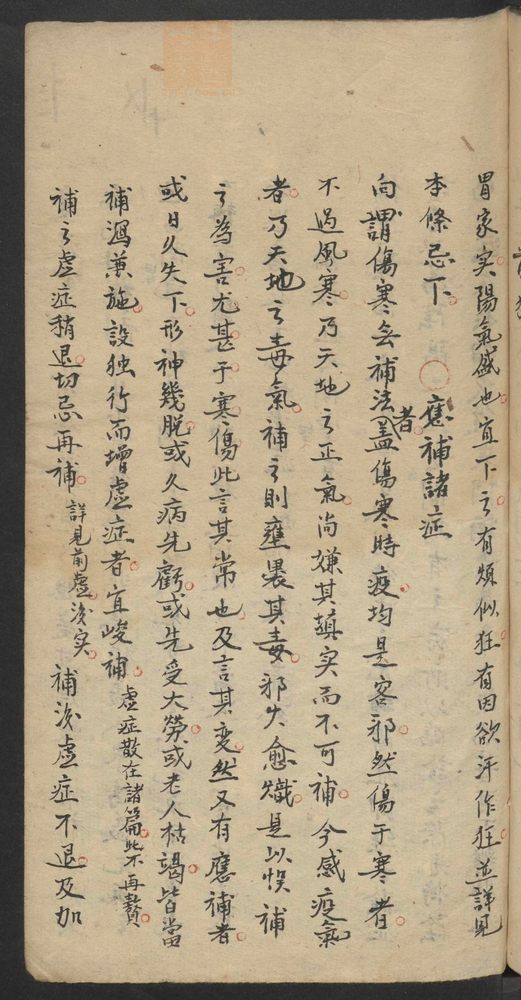 胃家实陽氣盛也宜下之有類似狂有因欲汗作狂並詳見
本條忌下○應補諸症
向謂傷寒無補法者盖傷寒時疫均是客邪然傷于寒者
不過風寒乃天地之正氣尚嫌其填实而不可補今感疫氣
者乃天地之毒氣補之則壅裹其毒邪火愈熾是以悮補
之為害尤甚于寒傷此言其常也及言其变然又有應補者
或日久失下形神幾脫或久病先虧或先受大勞或老人枯竭皆當
補瀉兼施設独行而增虛症者宜峻補虛症散在諸篇此不再贅
補之虛症稍退切忌再補詳見前虛後实補後虛症不退及加